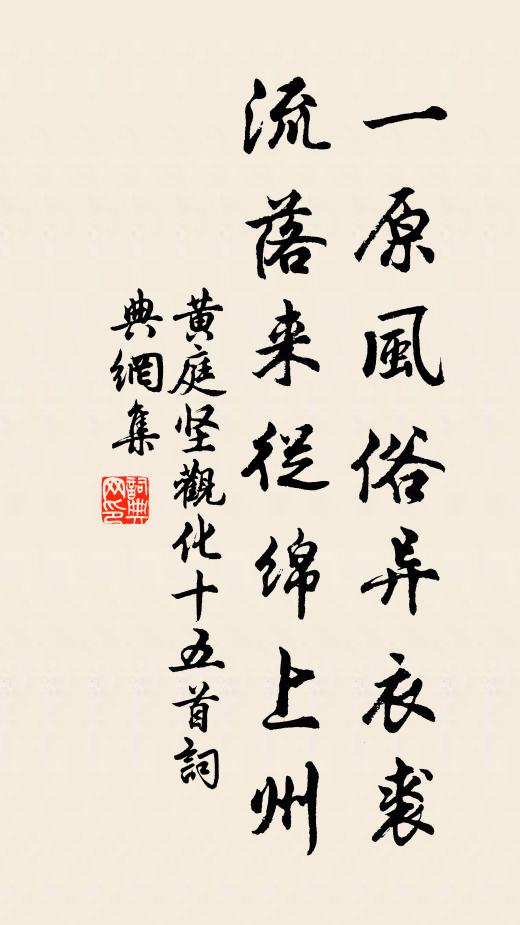 一原風俗异衣裘
流落来從綿上州
黄庭坚觀化十五首詞
典網集
詞典網印